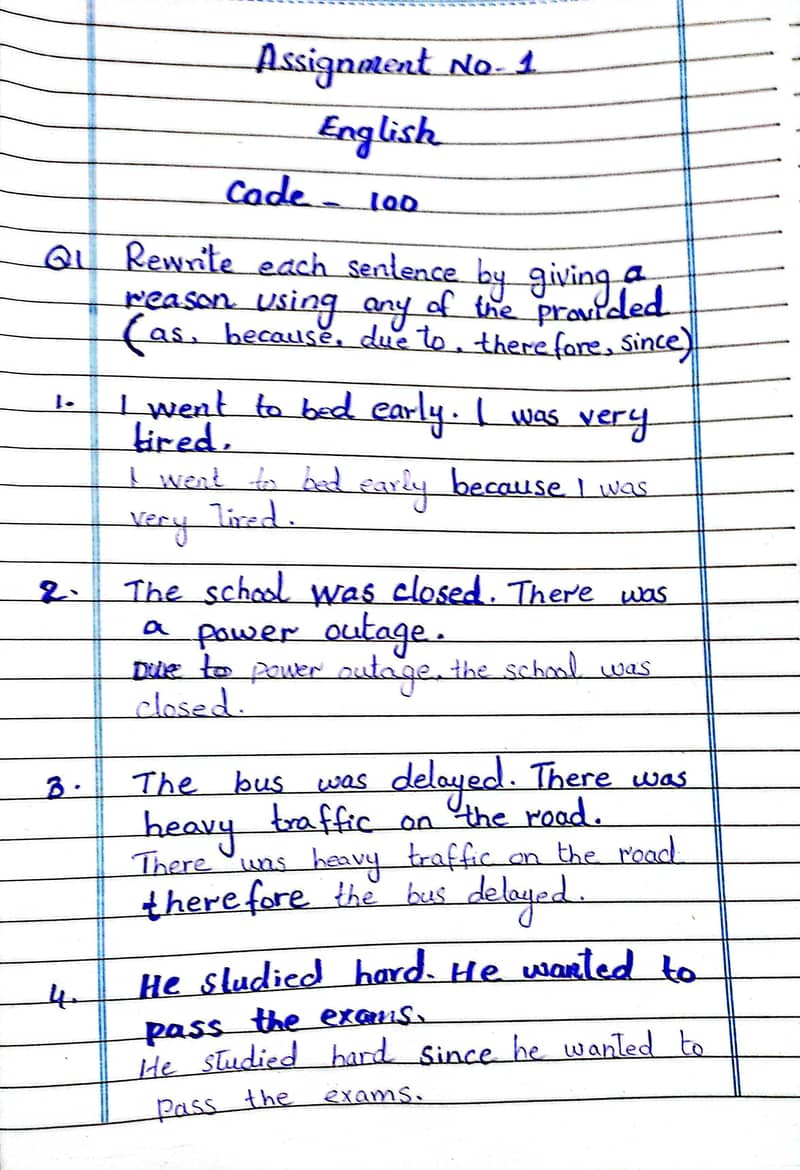 Assignment No. 1
English
Code - 100
Q1 Rewrite each sentence by giving a
reason using any of the provided
(as, because, due to, therefore, since)
1. I went to bed early. I was very
tired.
I went to bed early because I was
very Tired.
2. The school was closed. There was
a power outage.
Due to power outage, the school was
closed.
3. The bus was delayed. There was
heavy traffic on the road.
There was heavy traffic on the road
therefore the bus delayed.
4. He studied hard. He wanted to
pass the exams.
He studied hard since he wanted to
pass the exams.